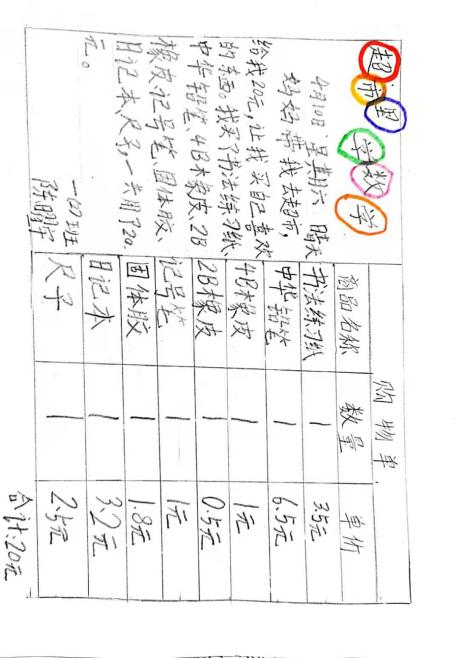 超市里学数学
4月10日 星期六 晴天
妈妈带我去超市,
给我20元,让我买自己喜欢
的东西。我买了书法练习纸、
中华铅笔、4B橡皮、2B
橡皮、记号笔、固体胶、
日记本、尺子,一共用了20
元。
购物单
商品名称 数量 单价
书法练习纸 1 3.5元
中华铅笔 1 6.5元
4B橡皮 1 1元
2B橡皮 1 0.5元
记号笔 1 1元
固体胶 1 1.8元
日记本 1 3.2元
尺子 1 2.5元
合计:20元